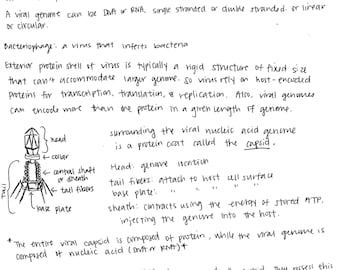 A viral genome can be DNA or RNA, single stranded or double stranded, or linear
or circular.
Bacteriophage: a virus that infects bacteria
Exterior protein shell of virus is typically a rigid structure of fixed size
that can't accommodate larger genome. So virus rely on host-encoded
proteins for transcription, translation, & replication. Also, viral genomes
can encode more than one protein in a given length of genome.
surrounding the viral nucleic acid genome
is a protein coat called the capsid.
head
collar
central shaft
or sheath
tail fibers
base plate
Tail
Head: genome location
tail fibers: attach to host cell surface
base plate: " " " " "
sheath: contracts using the energy of stored ATP,
injecting the genome into the host.
* The entire viral capsid is composed of protein, while the viral genome is
composed of nucleic acid (DNA or RNA) *